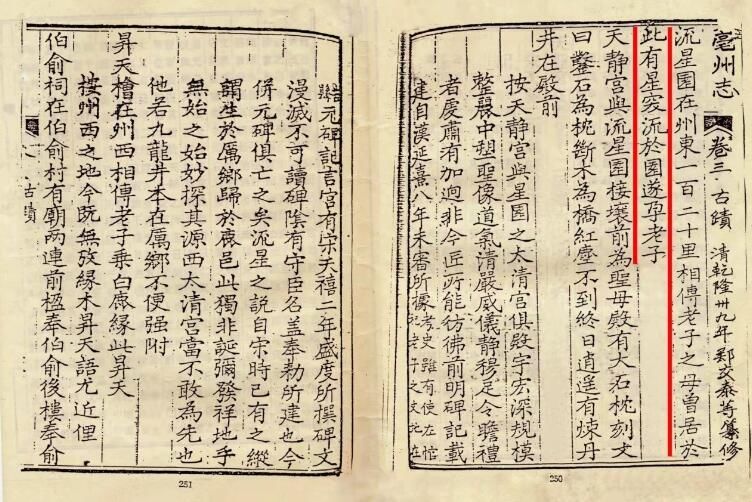 亳州志 卷三 古蹟 清乾隆卅九年 郑交泰等纂修
流星園在州東一百二十里相傳老子之母曾居於
此有星突流於園遂孕老子
天静宫與流星園接壤前為聖母殿有大石枕刻文
曰鑿石為枕斷木為橋紅塵不到終日逍遥有煉丹
井在殿前
按天静宫與星園之太清宫俱殿宇宏深規模
整嚴中塑聖像道氣清嚴威儀静穆足令瞻禮
者虔肅有加迥非今匠所能彷彿前明碑記載
建自漢延熹八年未審所據考史雖有使左悺
老子之文
元碑記言宫有宋天禧二年盛度所撰碑文
漫滅不可讀碑陰有守臣名盖奉勅所建也今
併元碑俱亡之矣流星之説自宋時已有之縱
謂生於厲鄉歸於鹿邑此獨非誕彌發祥地乎
無始之始妙探其源西太清宫當不敢為先也
他若九龍井本在厲鄉不便强附
昇天檜在州西相傳老子乗白鹿緣此昇天
按州西之地今既無攷緣木昇天語尤近俚
伯俞祠在伯俞村有廟两連前楹奉伯俞後樓奉俞
古蹟
251
250